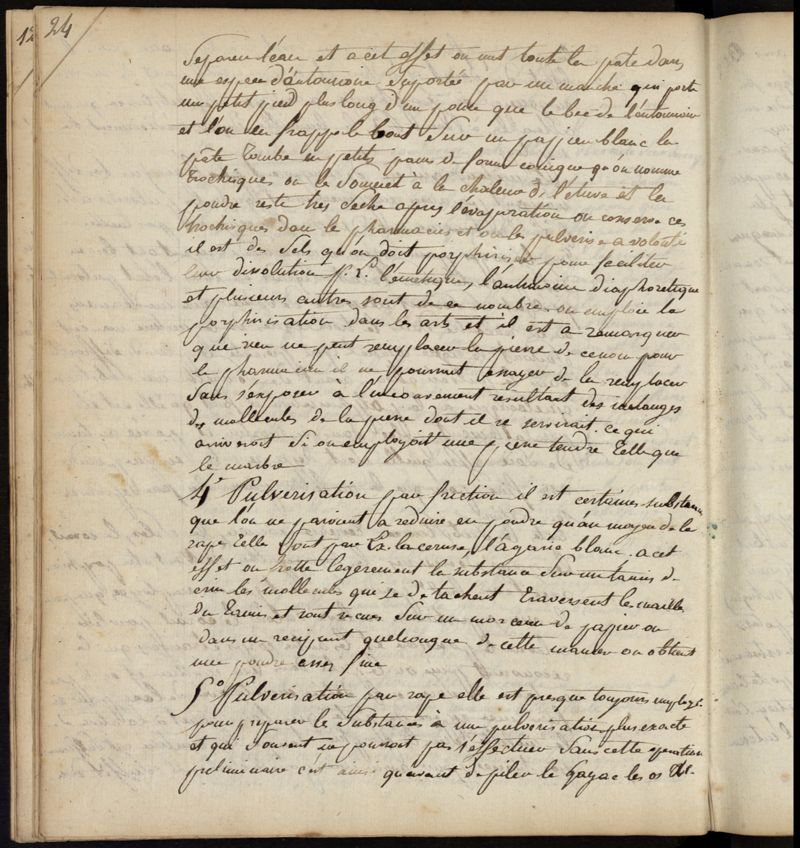 12
24
Separer l'eau et a cet effet on met toute la pâte dans
une espece d'antonnoire suportée par un manche qui porte
un petit pied plus long d'un pouce que le bec de l'antonnoir
et l'on en frappe le bout Sur un pappier blanc la
pâte tombe en petits pains de forme conique qu'on nomme
trochisques on le Soumet à la chaleur de l'etuve et la
poudre reste tres Seche apres l'évaporation on conserve ces
trochisques dans le pharmacies et on les pulverise a volonté
il est des Sels qu'on doit porphiriser pour faciliter
leur disolution p. Ex. l'émetique, l'antimoine diaphoretique
et plusieurs autres sont de ce nombre. on emploie la
porphirisation dans les arts et il est à remarquer
que rien ne peut remplacer la pierre de pour
le pharmacien il ne pourrait essayer de la remplacer
Sans s'exposer à l'inconvenient resultant des melanges
des mollecules de la pierre dont il se servirait ce qui
ariveroit Si on employoit une piere tendre telle que
le marbre
4° Pulverisation par friction il est certaines substances
que l'on ne parvient a reduire en poudre qu'au moyen de la
rape telle Sont par Ex. la ceruse, l'agaric blanc. a cet
effet on frotte legèrement la substance Sur un tamis de
crin les mollecules qui se detachent traversent le maille
du tamis et sont recues Sur un morceau de pappier ou
dans un recipient quelconque de cette maniere on obtient
une poudre asses fine
5° Pulverisation par rape elle est presque toujours employée
pour preparer le Substances à une pulverisation plus exacte
et qui Souvent ne pourroit pas s'effectuer Sans cette operation
preliminaire c'est ainsi qu'avant de piler le Gayac les os